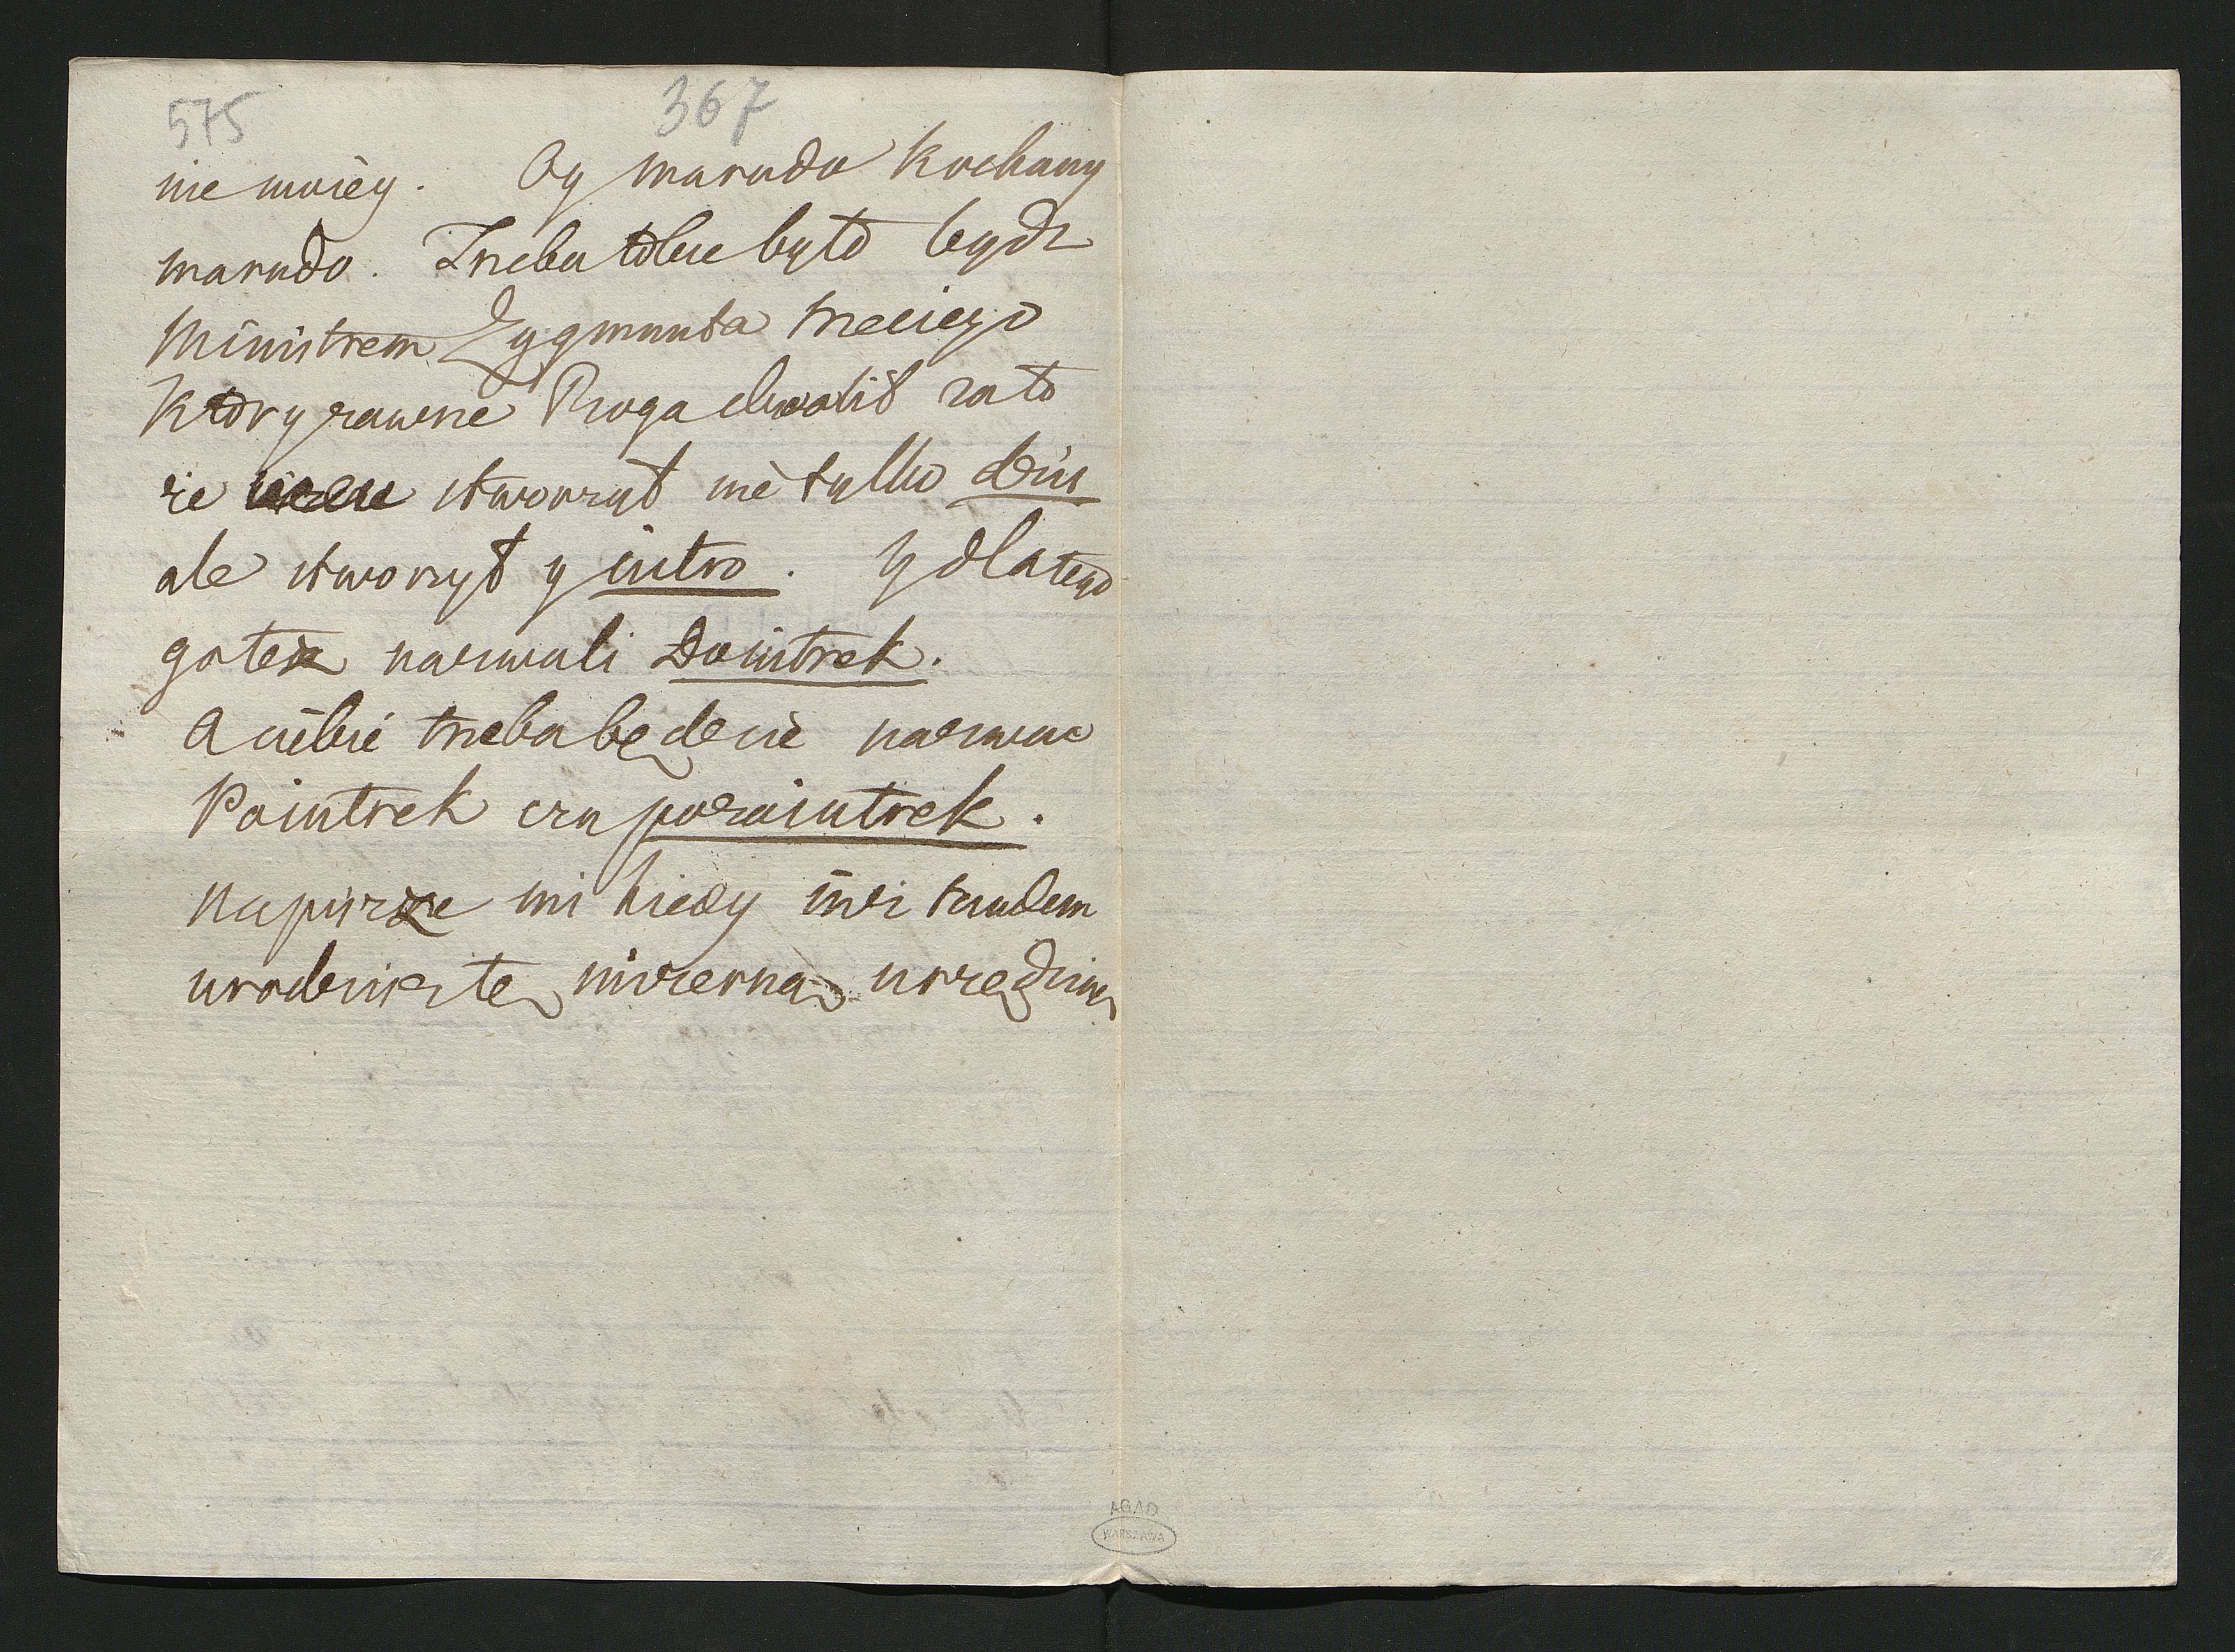 575 367
nie moiey. Oy marudo kochany
marudo. Trzeba tobie było bydz
Ministrem Zygmunta trzeciego
Ktory zawsze Boga chwalił zato
że stworzył nie tylko dziś
ale stworzył y iutro. Y dlatego
go też nazwali Doiutrek.
A ciebie trzeba będzie nazwac
Poiutrek czy pozaiutrek.
Napiszże mi kiedy też tandem
urodzisz tę mizerną urzędinę
AGAD
WARSZAWA